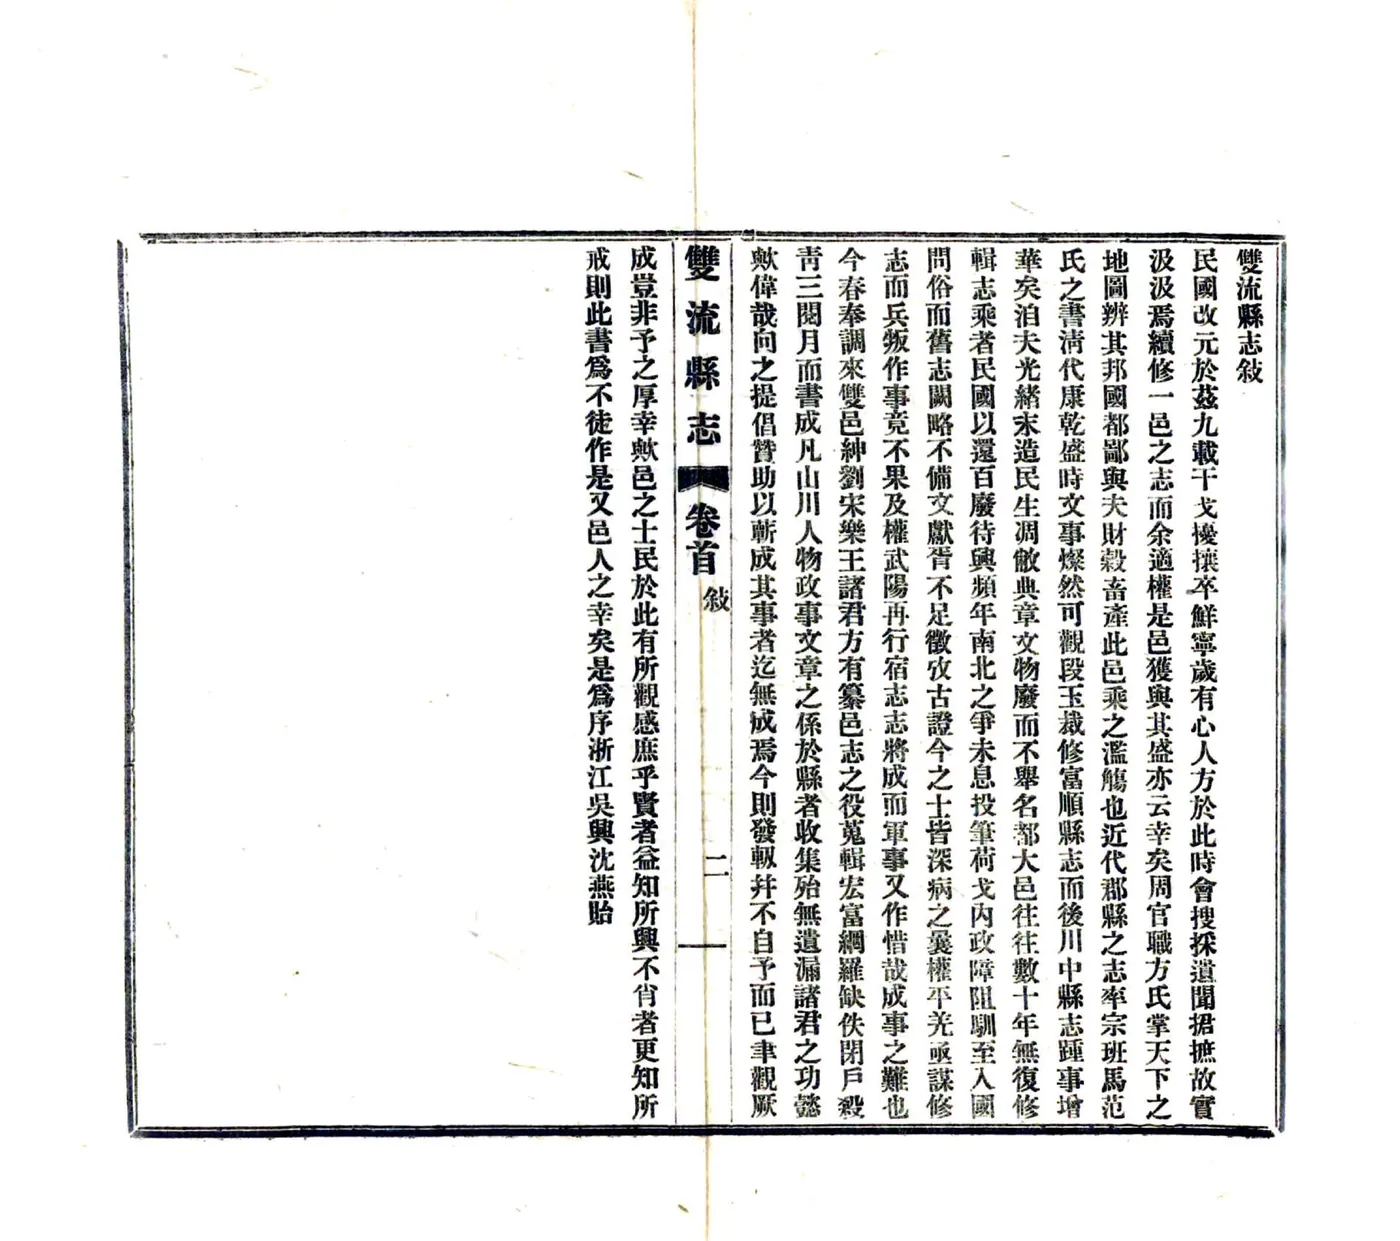 雙流縣志敍
民國改元於茲九載干戈擾攘卒鮮寧歲有心人方於此時會搜採遺聞捃摭故實
汲汲焉續修一邑之志而余適權是邑獲與其盛亦云幸矣周官職方氏掌天下之
地圖辨其邦國都鄙與夫財穀畜產此邑乘之濫觴也近代郡縣之志率宗班馬范
氏之書淸代康乾盛時文事燦然可觀段玉裁修富順縣志而後川中縣志踵事增
華矣洎夫光緒末造民生凋敝典章文物廢而不舉名都大邑往往數十年無復修
輯志乘者民國以還百廢待興頻年南北之爭未息投筆荷戈內政障阻馴至入國
問俗而舊志闕略不備文獻胥不足徵攷古證今之士皆深病之曩權平羌亟謀修
志而兵叛作事竟不果及權武陽再行宿志志將成而軍事又作惜哉成事之難也
今春奉調來雙邑紳劉宋樂王諸君方有纂邑志之役蒐輯宏富網羅缺佚閉戶殺
靑三閱月而書成凡山川人物政事文章之係於縣者收集殆無遺漏諸君之功懿
歟偉哉向之提倡贊助以蘄成其事者迄無成焉今則發軔幷不自予而已聿觀厥
雙流縣志 卷首 敍 二
成豈非予之厚幸歟邑之士民於此有所觀感庶乎賢者益知所興不肖者更知所
戒則此書爲不徒作是又邑人之幸矣是爲序浙江吳興沈燕貽